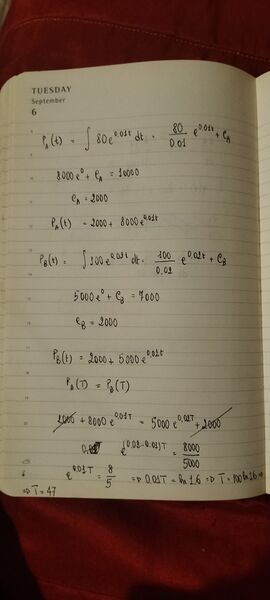 TUESDAY
September
6
P_A(t) = ∫ 80 e^{0.01t} dt = 80/0.01 e^{0.01t} + C_A
8000 e^0 + C_A = 10000
C_A = 2000
P_A(t) = 2000 + 8000 e^{0.01t}
P_B(t) = ∫ 100 e^{0.02t} dt = 100/0.02 e^{0.02t} + C_B
5000 e^0 + C_B = 7000
C_B = 2000
P_B(t) = 2000 + 5000 e^{0.02t}
P_A(T) = P_B(T)
2000 + 8000 e^{0.01T} = 5000 e^{0.02T} + 2000
e^{(0.02-0.01)T} = 8000/5000
e^{0.01T} = 8/5 => 0.01T = ln 1.6 => T = 100 ln 1.6 =>
=> T = 47